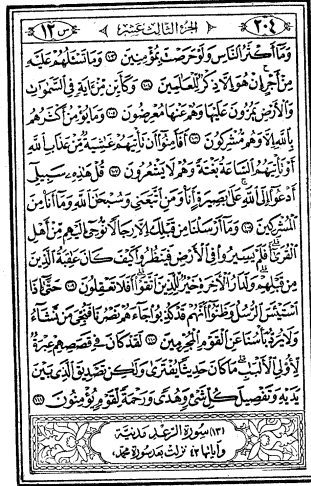 ٢٠٤ الجزء الثالث عشر س ١٢
وَمَآ أَكْثَرُ ٱلنَّاسِ وَلَوْ حَرَصْتَ بِمُؤْمِنِينَ ۝ وَمَا تَسْـَٔلُهُمْ عَلَيْهِ
مِنْ أَجْرٍ إِنْ هُوَ إِلَّا ذِكْرٌ لِّلْعَـٰلَمِينَ ۝ وَكَأَيِّن مِّنْ ءَايَةٍ فِى ٱلسَّمَـٰوَٰتِ
وَٱلْأَرْضِ يَمُرُّونَ عَلَيْهَا وَهُمْ عَنْهَا مُعْرِضُونَ ۝ وَمَا يُؤْمِنُ أَكْثَرُهُم
بِٱللَّهِ إِلَّا وَهُم مُّشْرِكُونَ ۝ أَفَأَمِنُوٓا۟ أَن تَأْتِيَهُمْ غَـٰشِيَةٌ مِّنْ عَذَابِ ٱللَّهِ
أَوْ تَأْتِيَهُمُ ٱلسَّاعَةُ بَغْتَةً وَهُمْ لَا يَشْعُرُونَ ۝ قُلْ هَـٰذِهِۦ سَبِيلِىٓ
أَدْعُوٓا۟ إِلَى ٱللَّهِ عَلَىٰ بَصِيرَةٍ أَنَا۠ وَمَنِ ٱتَّبَعَنِى وَسُبْحَـٰنَ ٱللَّهِ وَمَآ أَنَا۠ مِنَ
ٱلْمُشْرِكِينَ ۝ وَمَآ أَرْسَلْنَا مِن قَبْلِكَ إِلَّا رِجَالًا نُّوحِىٓ إِلَيْهِم مِّنْ أَهْلِ
ٱلْقُرَىٰٓ أَفَلَمْ يَسِيرُوا۟ فِى ٱلْأَرْضِ فَيَنظُرُوا۟ كَيْفَ كَانَ عَـٰقِبَةُ ٱلَّذِينَ
مِن قَبْلِهِمْ وَلَدَارُ ٱلْـَٔاخِرَةِ خَيْرٌ لِّلَّذِينَ ٱتَّقَوْا۟ أَفَلَا تَعْقِلُونَ ۝ حَتَّىٰٓ إِذَا
ٱسْتَيْـَٔسَ ٱلرُّسُلُ وَظَنُّوٓا۟ أَنَّهُمْ قَدْ كُذِبُوا۟ جَآءَهُمْ نَصْرُنَا فَنُجِّىَ مَن نَّشَآءُ
وَلَا يُرَدُّ بَأْسُنَا عَنِ ٱلْقَوْمِ ٱلْمُجْرِمِينَ ۝ لَقَدْ كَانَ فِى قَصَصِهِمْ عِبْرَةٌ
لِّأُو۟لِى ٱلْأَلْبَـٰبِ مَا كَانَ حَدِيثًا يُفْتَرَىٰ وَلَـٰكِن تَصْدِيقَ ٱلَّذِى بَيْنَ
يَدَيْهِ وَتَفْصِيلَ كُلِّ شَىْءٍ وَهُدًى وَرَحْمَةً لِّقَوْمٍ يُؤْمِنُونَ ۝
(١٣) سورة الرعد مدنية
وآياتها ٤٣ نزلت بعد سورة محمد